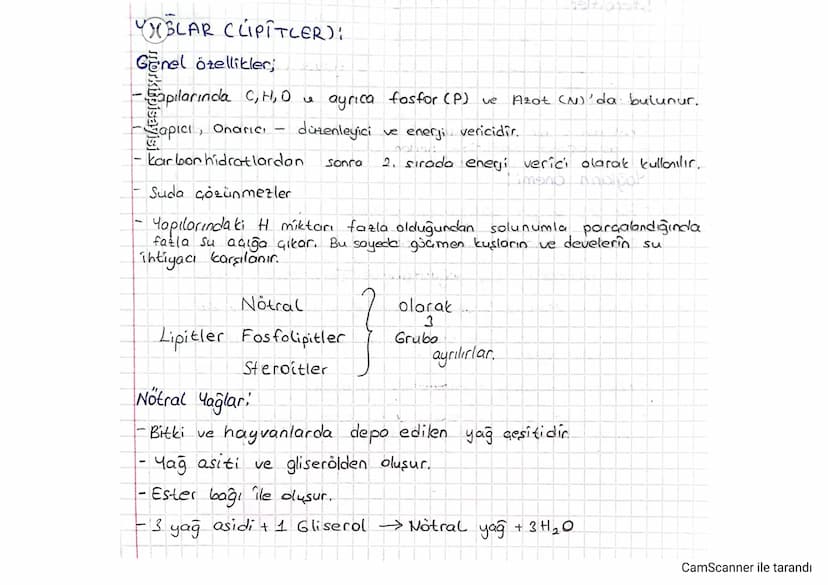 YAĞLAR (LİPİTLER):
Genel özellikler;
- Yapılarında C, H, O ve ayrıca fosfor (P) ve Azot (N)'da bulunur.
- Yapıcı, Onarıcı - düzenleyici ve enerji vericidir.
- karbonhidratlardan sonra 2. sırada enerji verici olarak kullanılır.
- Suda çözünmezler
- Yapılarındaki H miktarı fazla olduğundan solunumla parçalandığında
fazla su açığa çıkar. Bu sayede göçmen kuşların ve develerin su
ihtiyacı karşılanır.
Nötral
Lipitler Fosfolipitler
Steroitler
olarak
3
Gruba
ayrılırlar.
Nötral Yağlar:
- Bitki ve hayvanlarda depo edilen yağ çeşitidir
- Yağ asiti ve gliserölden oluşur.
- Ester bağı ile oluşur.
- 3 yağ asidi + 1 Gliserol → Nötral yağ + 3H₂O
CamScanner ile tarandı